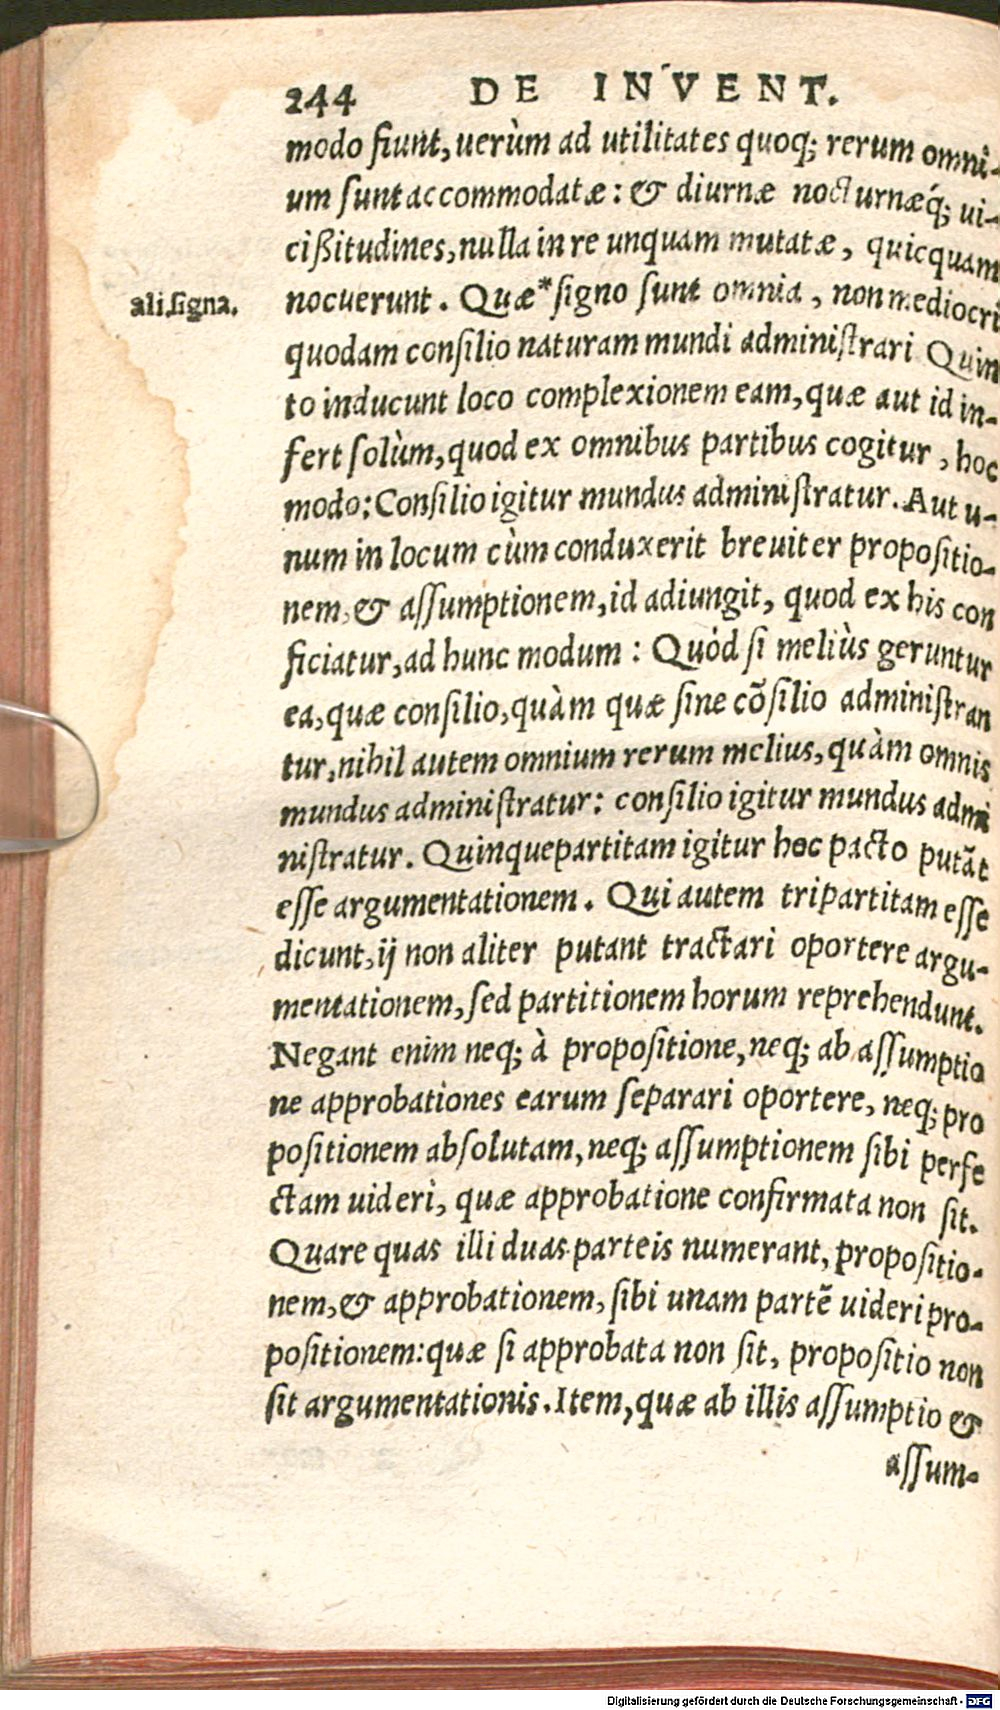 244 DE INVENT.
modo fiunt, uerùm ad utilitates quoq; rerum omni-
um sunt accommodatæ: & diurnæ nocturnæq́; ui-
cißitudines, nulla in re unquam mutatæ, quicquam
ali. signa.
nocuerunt. Quæ* signo sunt omnia, non mediocri
quodam consilio naturam mundi administrari Quin
to inducunt loco complexionem eam, quæ aut id in-
fert solùm, quod ex omnibus partibus cogitur, hoc
modo: Consilio igitur mundus administratur. Aut u-
num in locum cùm conduxerit breuiter propositio-
nem, & assumptionem, id adiungit, quod ex his con
ficiatur, ad hunc modum: Quòd si meliùs geruntur
ea, quæ consilio, quàm quæ sine cõsilio administran
tur, nihil autem omnium rerum melius, quàm omnis
mundus administratur: consilio igitur mundus admi
nistratur. Quinquepartitam igitur hoc pacto putãt
esse argumentationem. Qui autem tripartitam esse
dicunt, ij non aliter putant tractari oportere argu-
mentationem, sed partitionem horum reprehendunt.
Negant enim neq; à propositione, neq; ab assumptio
ne approbationes earum separari oportere, neq; pro
positionem absolutam, neq; assumptionem sibi perfe
ctam uideri, quæ approbatione confirmata non sit.
Quare quas illi duas parteis numerant, propositio-
nem, & approbationem, sibi unam partẽ uideri pro-
positionem: quæ si approbata non sit, propositio non
sit argumentationis. Item, quæ ab illis assumptio &
assum-
Digitalisierung gefördert durch die Deutsche Forschungsgemeinschaft - DFG